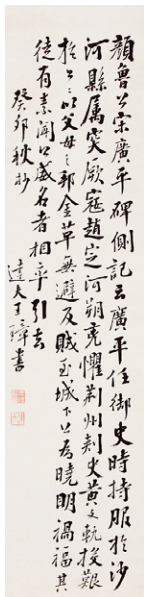 顏魯公宋廣平碑側記云廣平任御史時持服於沙
河縣属突厥寇趙定河朔兇懼荆州刺史黄文軌投艱
於公公以父母之邦金革無避及賊至城下公為曉明禍福其
徒有素聞公威名者相率引去
癸卯秋杪
達夫王
書